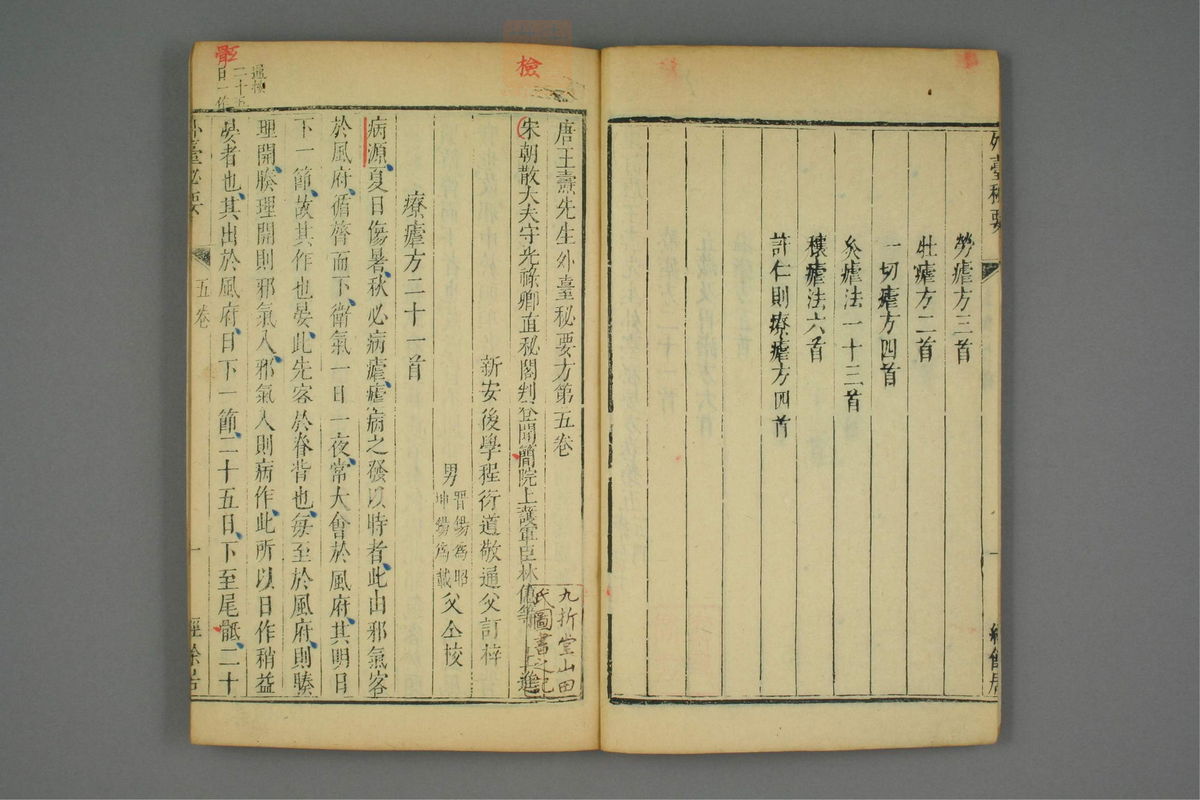 外臺秘要
勞瘧方三首
牡瘧方二首
一切瘧方四首
灸瘧法一十三首
禳瘧法六首
許仁則療瘧方四首
一
經餘居
唐王燾先生外臺秘要方第五卷
宋朝散大夫守光祿卿直秘閣判登聞簡院上護軍臣林億等上進
新安後學程衍道敬通父訂梓
男
晋錫爲昭
坤錫爲載
父仝校
療瘧方二十一首
病源夏日傷暑秋必病瘧瘧病之發以時者此由邪氣客
於風府循膂而下衛氣一日一夜常大會於風府其明日
下一節故其作也晏此先客於脊背也每至於風府則腠
理開腠理開則邪氣入邪氣入則病作此所以日作稍益
晏者也其出於風府日下一節二十五日下至尾骶二十
外臺秘要
五卷
一
經餘居
九折堂山田
氏圖書之記
檢
骶
二十五
日一作